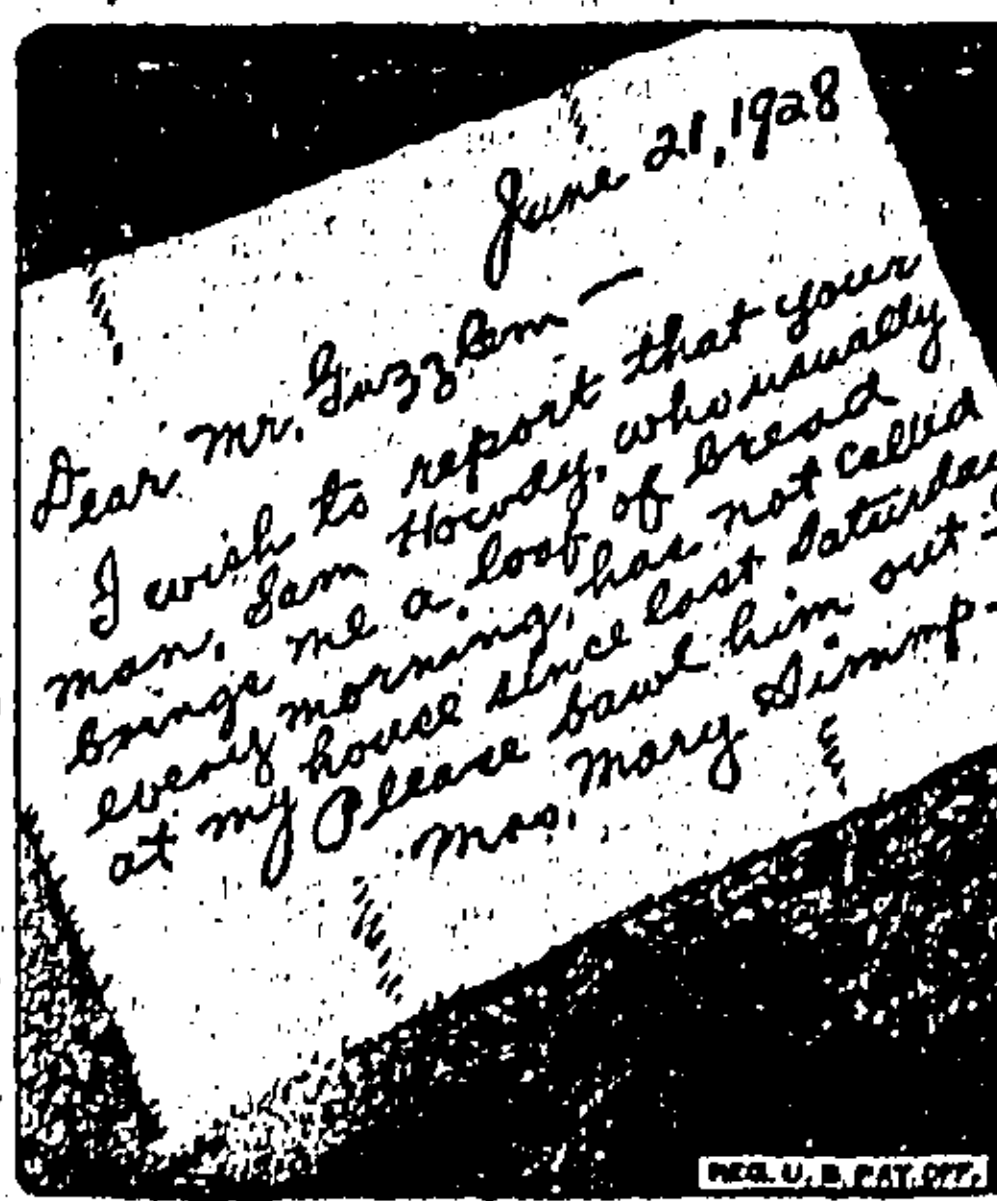 June 21, 1928
Dear Mr. Guzzlem —
I wish to report that your
man, Sam Howdy, who usually
brings me a loaf of bread
every morning, has not called
at my house since last Saturday
Please bawl him out —
Mrs. Mary Simmp-
REG. U. S. PAT. OFF.